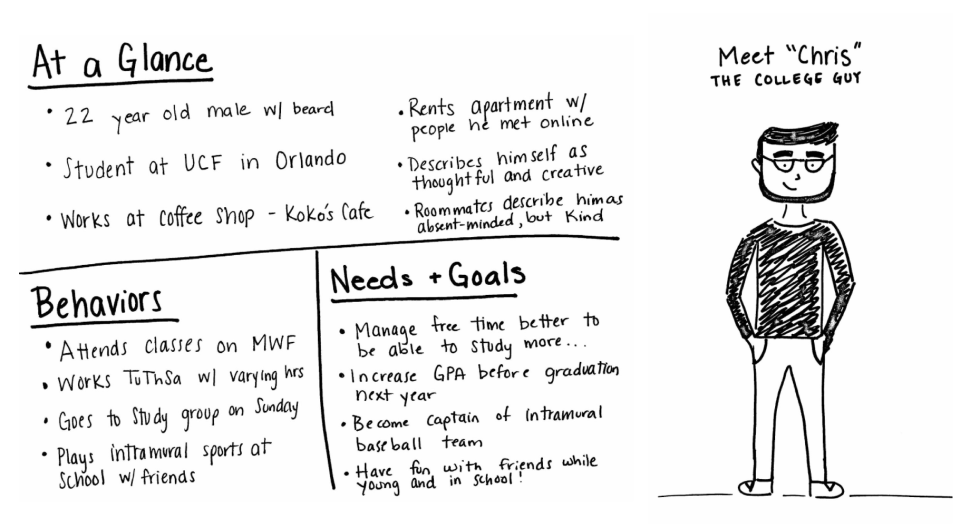 At a Glance
• 22 year old male w/ beard
• Student at UCF in Orlando
• Works at coffee shop - Koko's Cafe
• Rents apartment w/
people he met online
• Describes himself as
thoughtful and creative
• Roommates describe him as
absent-minded, but kind
Behaviors
• Attends classes on MWF
• Works TuThSa w/ varying hrs
• Goes to study group on Sunday
• Plays intramural sports at
school w/ friends
Needs + Goals
• Manage free time better to
be able to study more...
• Increase GPA before graduation
next year
• Become captain of intramural
baseball team
• Have fun with friends while
young and in school!
Meet "Chris"
THE COLLEGE GUY